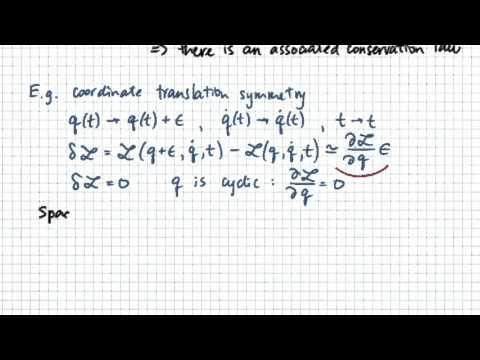 => there is an associated conservation law
E.g. coordinate translation symmetry
q(t) → q(t) + ε , q̇(t) → q̇(t) , t → t
δℒ = ℒ(q+ε, q̇, t) − ℒ(q, q̇, t) ≃ ∂ℒ/∂q ε
δℒ = 0 q is cyclic : ∂ℒ/∂q = 0
Spac